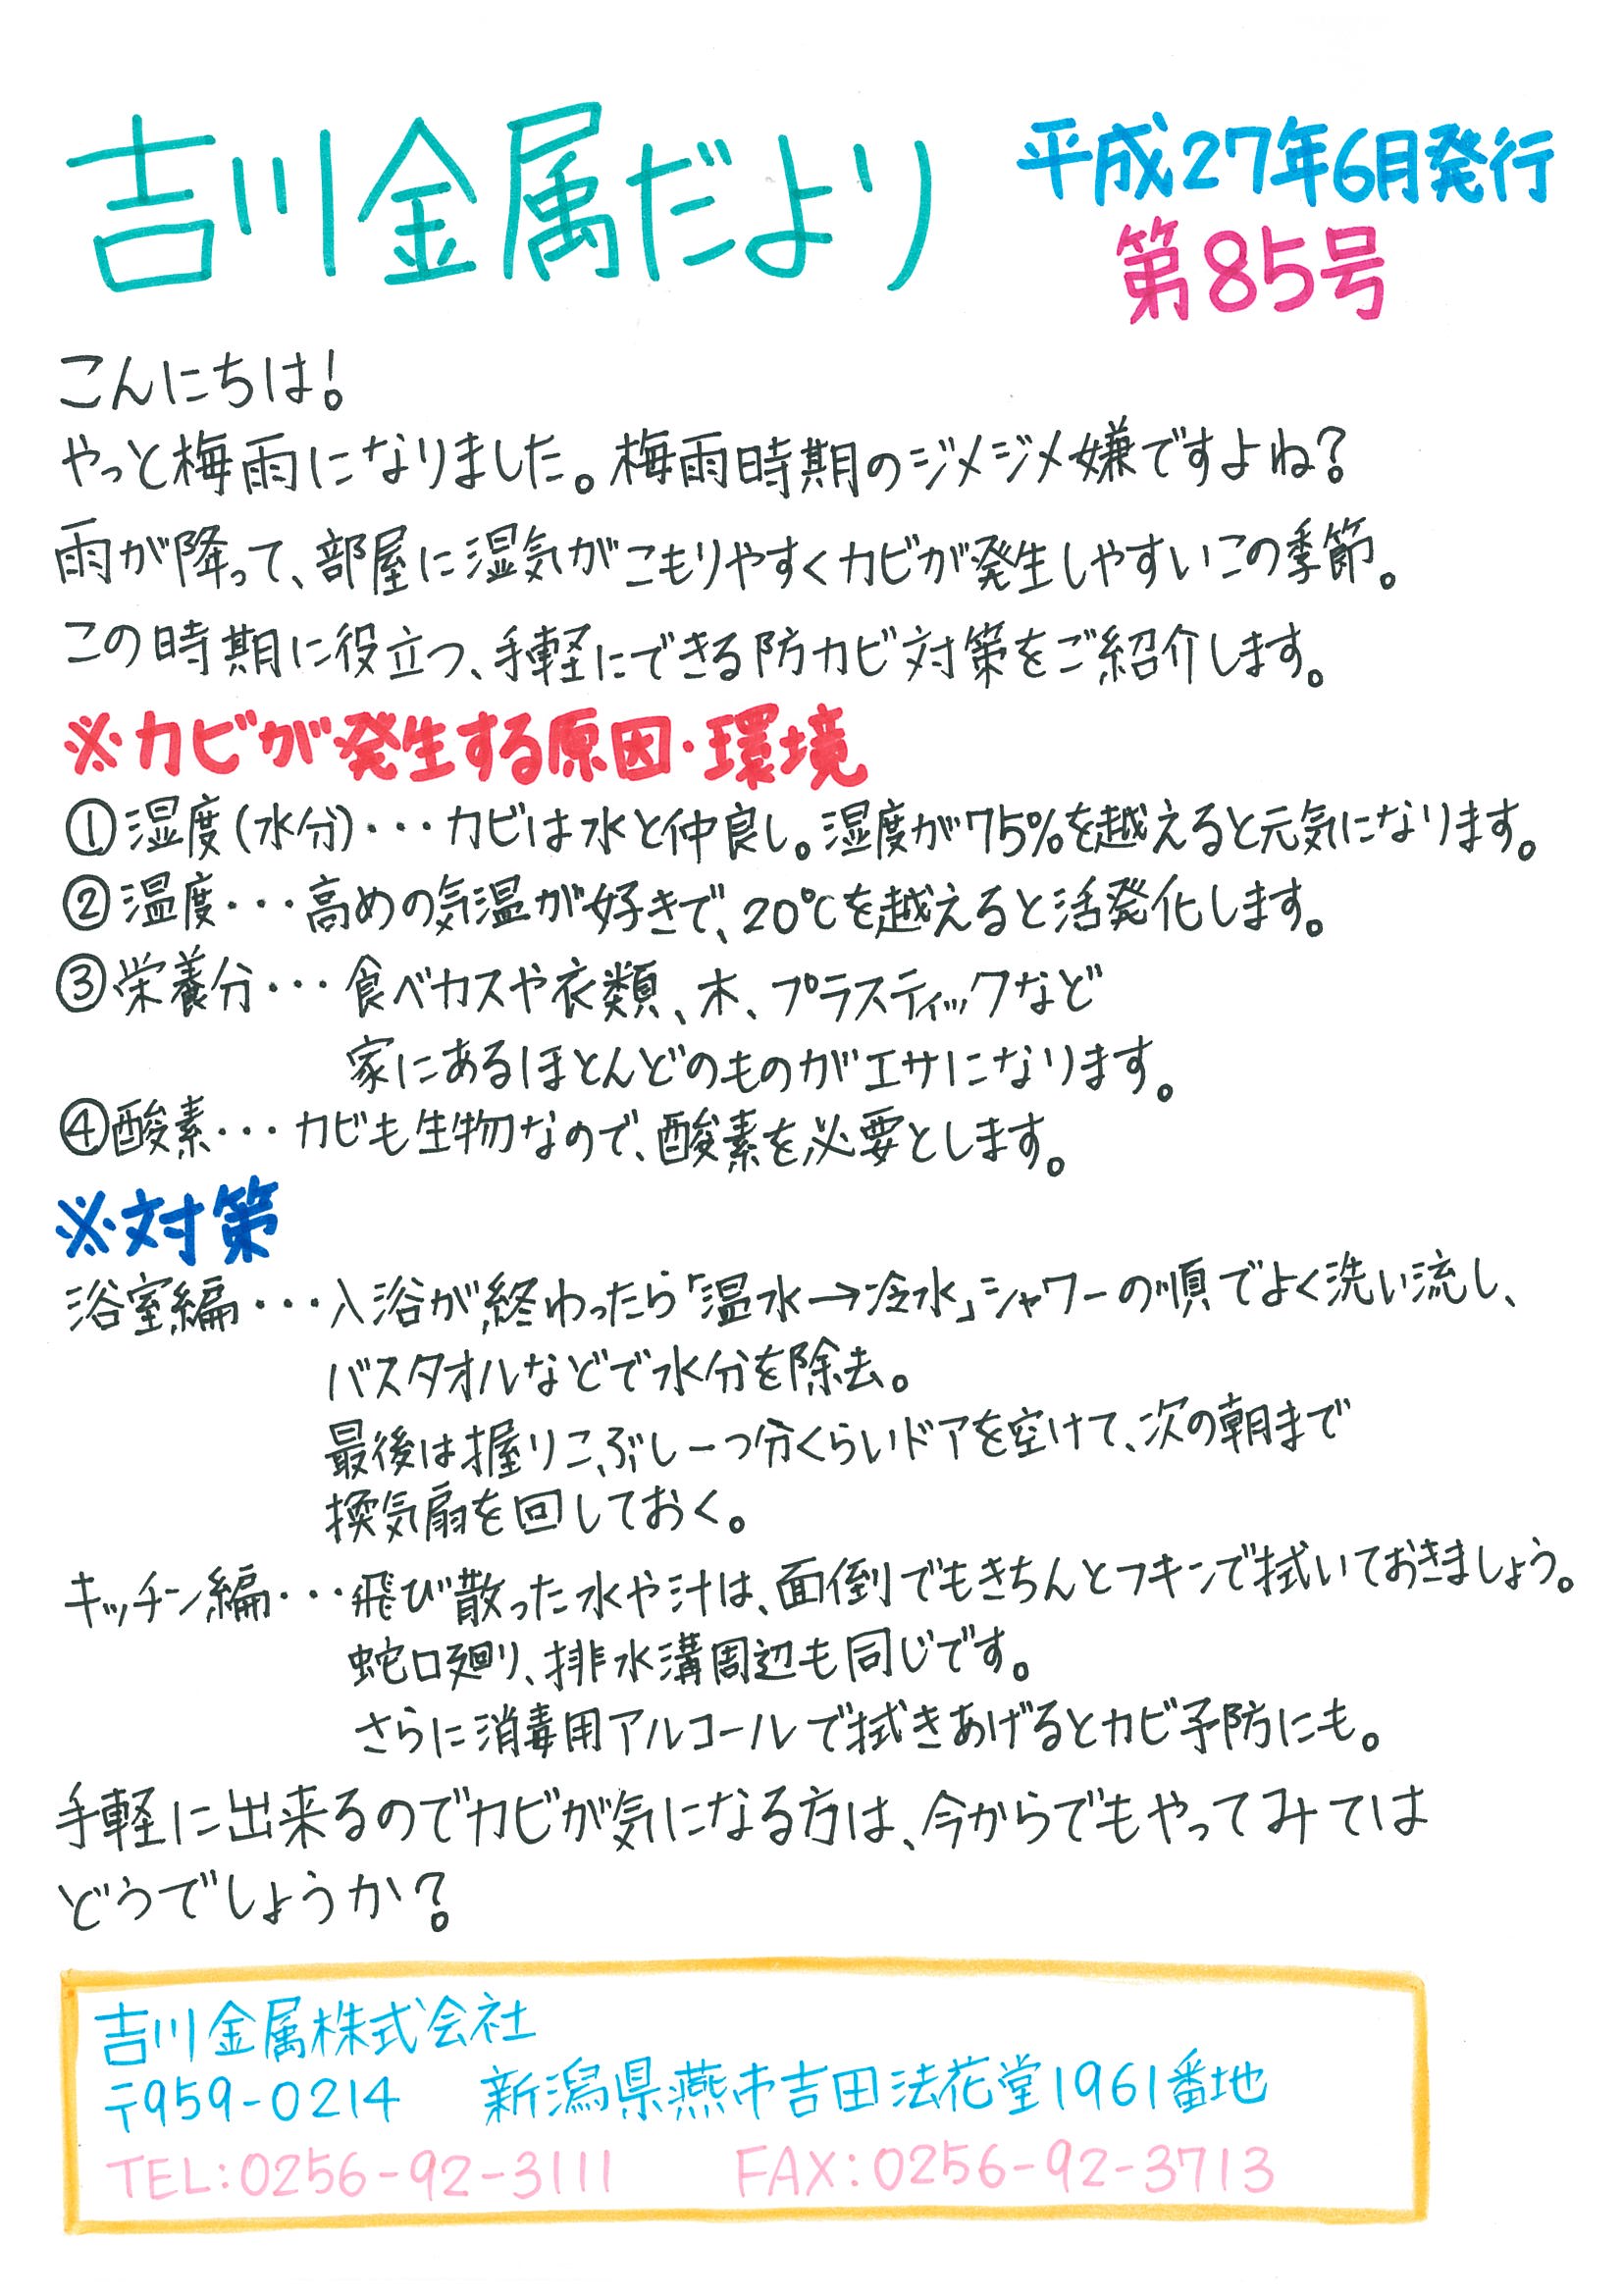 吉川金属だより
平成27年6月発行
第85号
こんにちは!
やっと梅雨になりました。梅雨時期のジメジメ嫌ですよね?
雨が降って、部屋に湿気がこもりやすくカビが発生しやすいこの季節。
この時期に役立つ、手軽にできる防カビ対策をご紹介します。
※カビが発生する原因・環境
①湿度(水分)・・・カビは水と仲良し。湿度が75%を越えると元気になります。
②温度・・・高めの気温が好きで、20℃を越えると活発化します。
③栄養分・・・食べカスや衣類、木、プラスティックなど
家にあるほとんどのものがエサになります。
④酸素・・・カビも生物なので、酸素を必要とします。
※対策
浴室編・・・入浴が終わったら「温水→冷水」シャワーの順でよく洗い流し、
バスタオルなどで水分を除去。
最後は握りこぶし一つ分くらいドアを空けて、次の朝まで
換気扇を回しておく。
キッチン編・・・飛び散った水や汁は、面倒でもきちんとフキンで拭いておきましょう。
蛇口廻り、排水溝周辺も同じです。
さらに消毒用アルコールで拭きあげるとカビ予防にも。
手軽に出来るのでカビが気になる方は、今からでもやってみては
どうでしょうか?
吉川金属株式会社
〒959-0214 新潟県燕市吉田法花堂1961番地
TEL:0256-92-3111 FAX:0256-92-3713